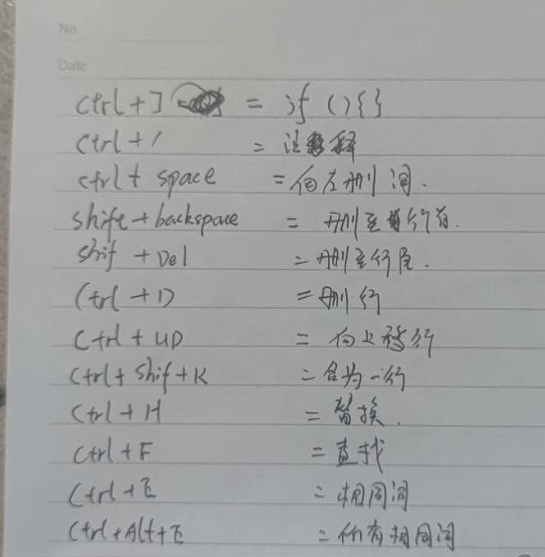 No.
Date
ctrl+J = if (){}
ctrl+/ = 注释
ctrl+ space = 向左删词.
shift+backspace = 删至行首.
shif +Del =删至行尾.
Ctrl +D =删行
Ctrl + UP = 向上移行
Ctrl+shif+K =合为一行
Ctrl +H =替换.
Ctrl +F =查找
Ctrl +E =相同词
Ctrl+Alt+E =所有相同词